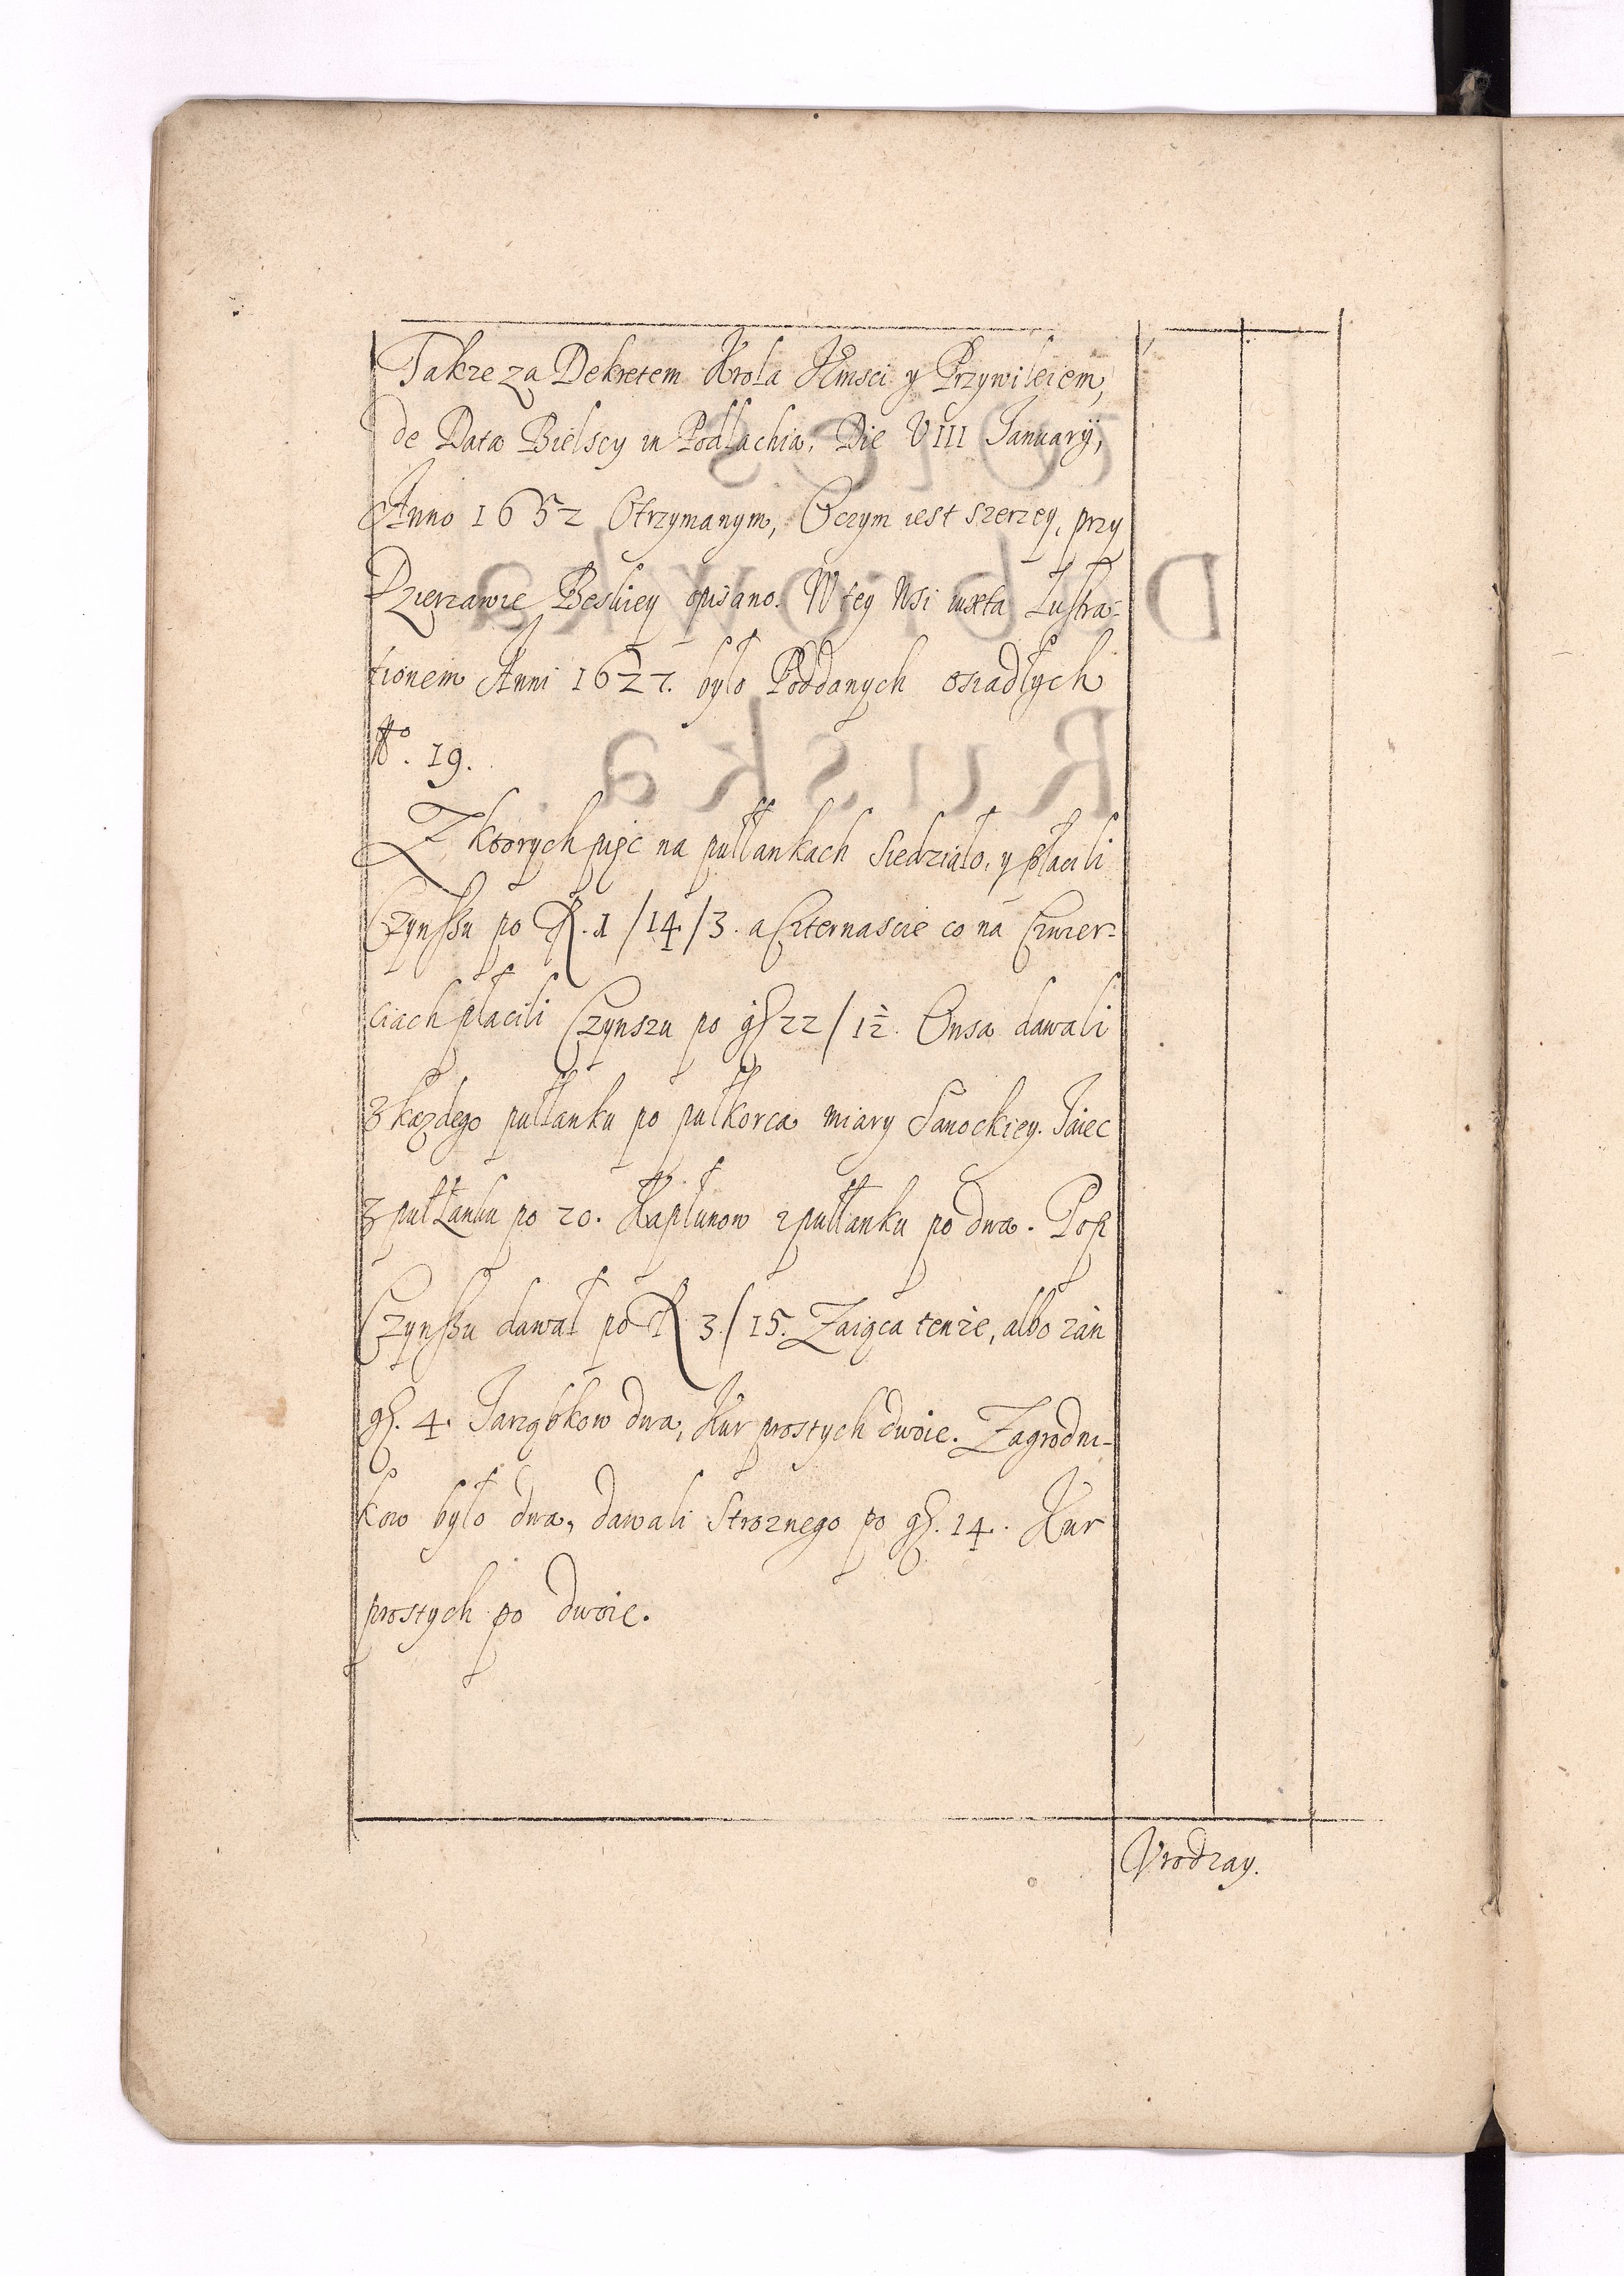 Takze za Dekretem Krola Jmsci y Przywileiem,
de Data Bielscy in Podlachia, Die VIII Januarÿ,
Anno 1632 Otrzymanym, Oczym iest szerzey, przy
Dzierzawie Beskiey opisano. W tey Wsi iuxta Lustra-
tionem Anni 1627. było Poddanych osiadłych
No. 19.
Z ktorych pięc na pułłankach siedziało, y płacili
Czynßu po fl. 1/14/3. a Czternascie co na Czwier-
ciach płacili Czynszu po gß 22/1½. Owsa dawali
z kazdego pułłanku po pułkorca miary Sanockiey. Jaiec
z pułłanku po 20. Kapłunow z pułłanku po dwa. Pop
Czynßu dawał po fl 3/15. Zaiąca tenze, albo zan
gß. 4. Jarząbkow dwa, Kur prostych dwoie. Zagrodni-
kow było dwa, dawali Stroznego po gß. 14. Kur
prostych po dwoie.
Vrodzay.